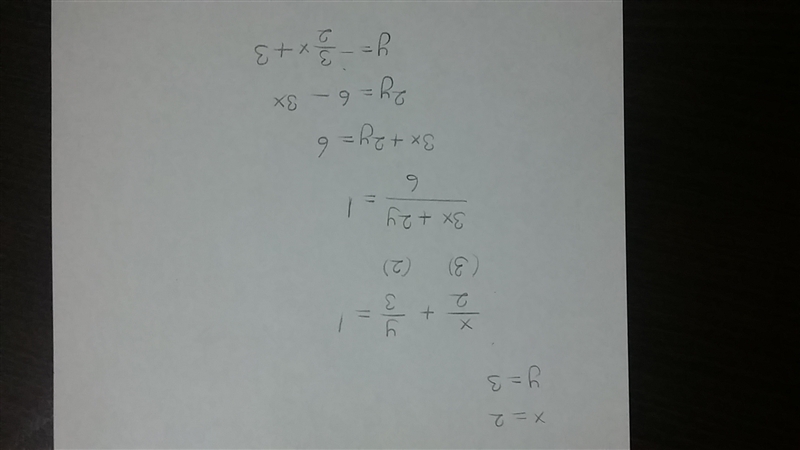 x = 2
y = 3
x/2 + y/3 = 1
(3) (2)
3x + 2y / 6 = 1
3x + 2y = 6
2y = 6 - 3x
y = - 3/2 x + 3